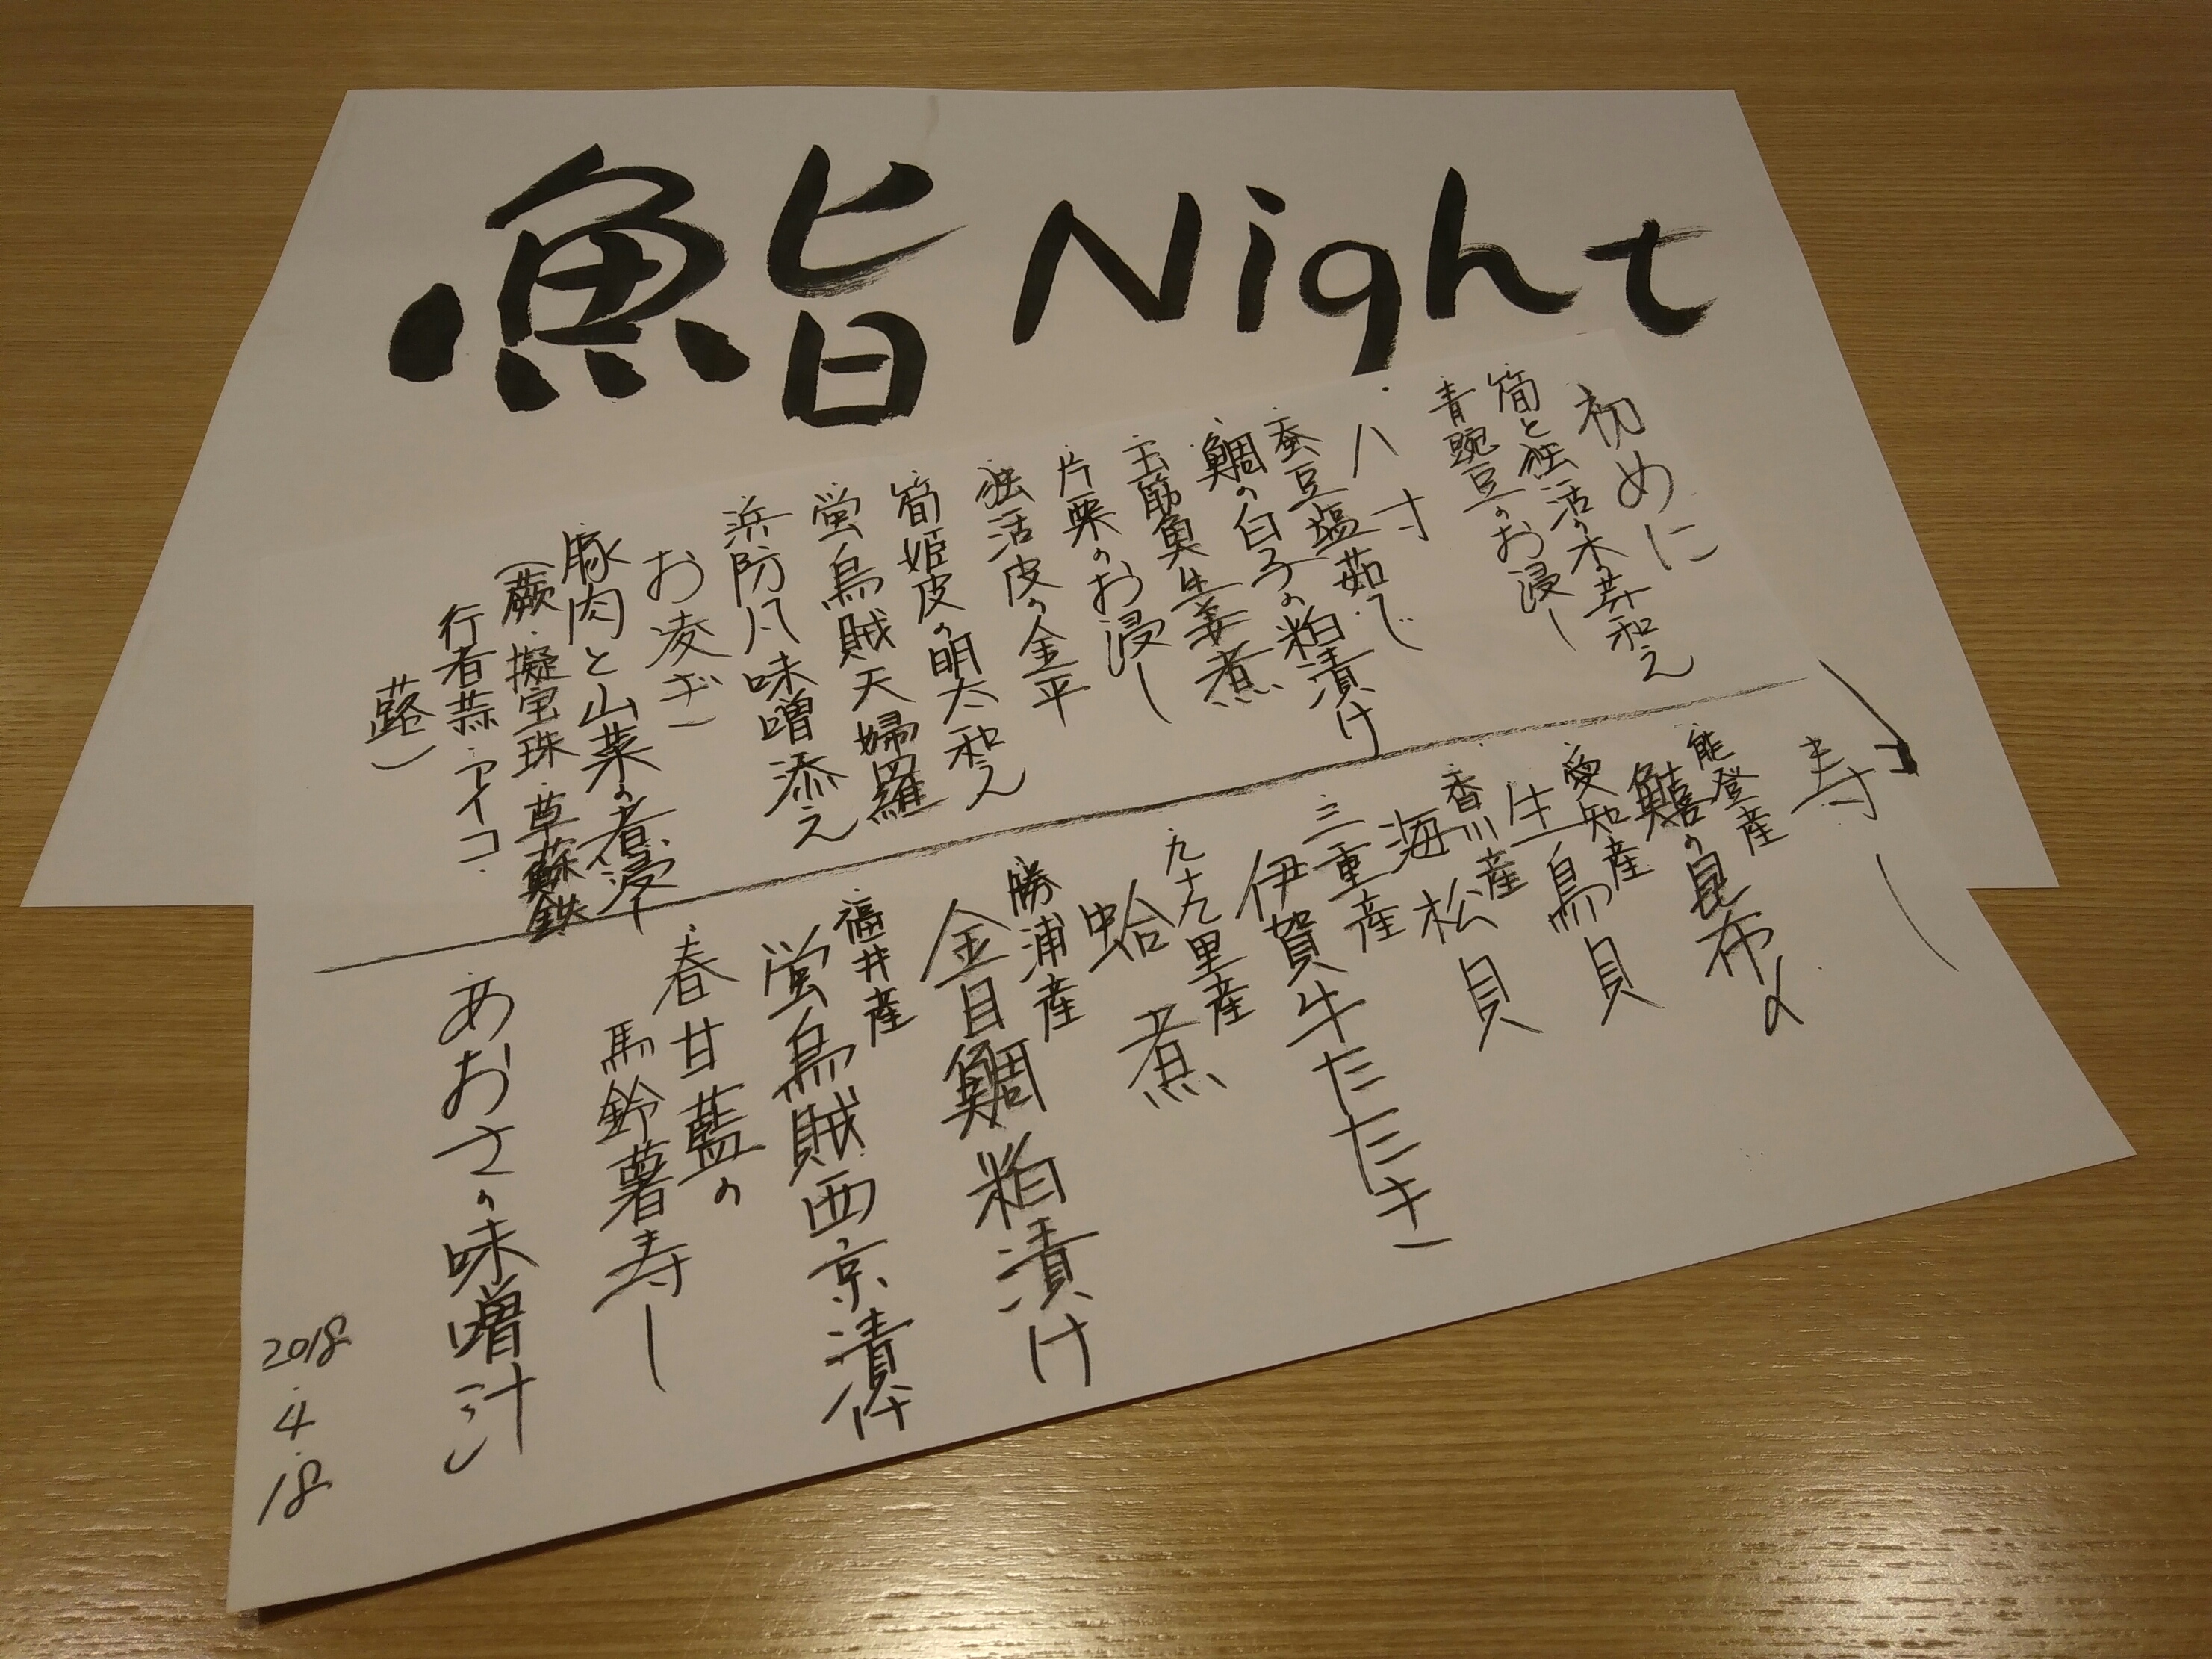 鮨 Night
初めに
筍と独活の木の芽和え
青豌豆のお浸し
八寸
蚕豆塩茹で
鯛の白子の粕漬け
玉筋魚生姜煮
片栗のお浸し
独活皮の金平
筍姫皮の明太和え
蛍烏賊天婦羅
浜防風味噌添え
お凌ぎ
豚肉と山菜の煮浸し
(蕨・擬宝珠・草蘇鉄
行者蒜・アイコ・
蕗)
寿し
能登産
鱚の昆布〆
愛知産
生鳥貝
香川産
海松貝
三重産
伊賀牛たたき
九十九里産
蛤煮
勝浦産
金目鯛粕漬け
福井産
蛍烏賊西京漬け
春甘藍の
馬鈴薯寿し
あおさの味噌汁
2018
.4
.18